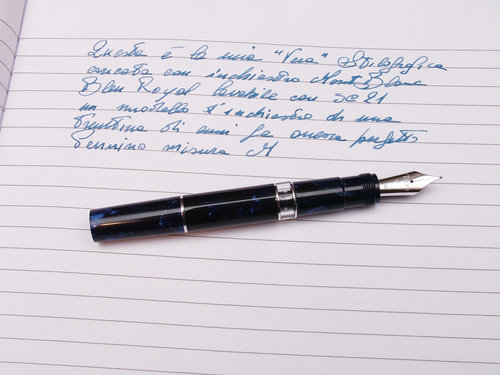 Questa è la mia "Vera" Stilografica
caricata con inchiostro MontBlanc
Bleu Royal lavabile con
un modello d'inchiostro di una
trentina di anni fa ancora perfetto
Pennino misura M